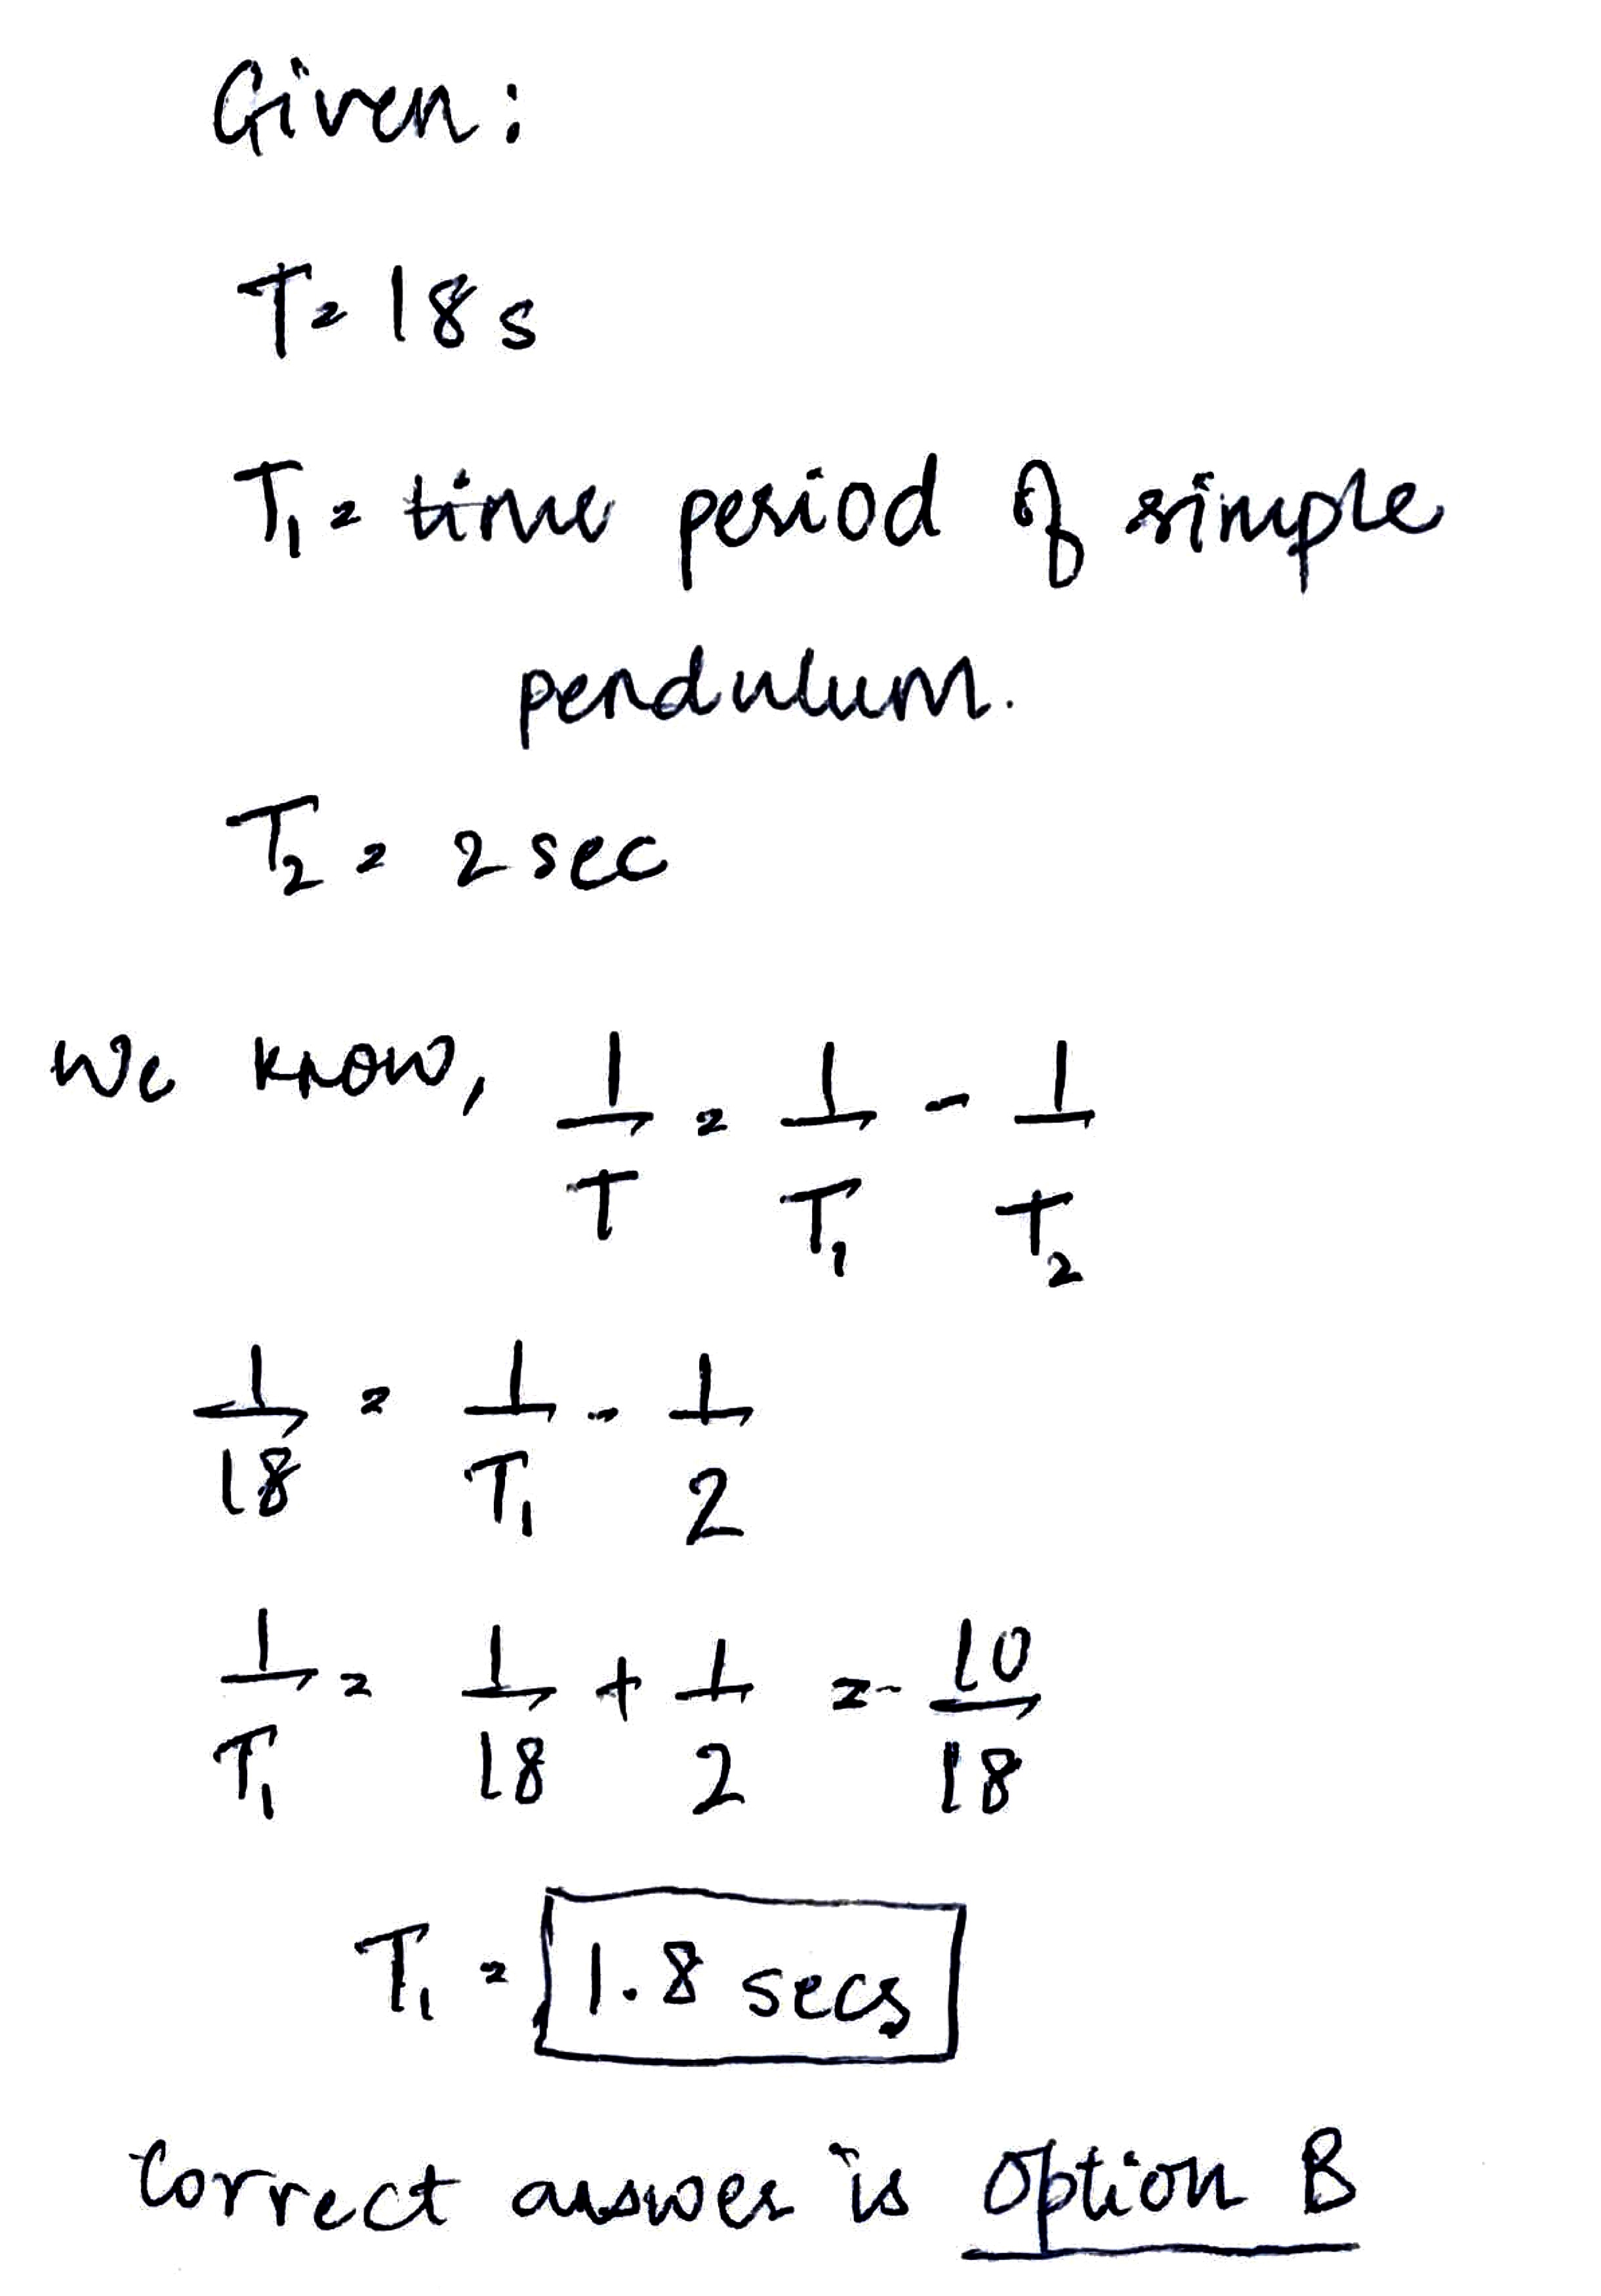 Given:
T = 18 s
T₁ = time period of simple
pendulum.
T₂ = 2 sec
We know, 1/T = 1/T₁ - 1/T₂
1/18 = 1/T₁ - 1/2
1/T₁ = 1/18 + 1/2 = 10/18
T₁ = 1.8 secs
Correct answer is Option B